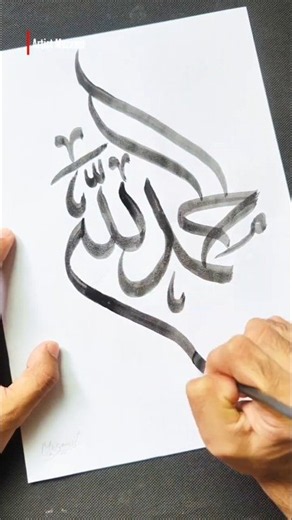 Artist
الحمد لله